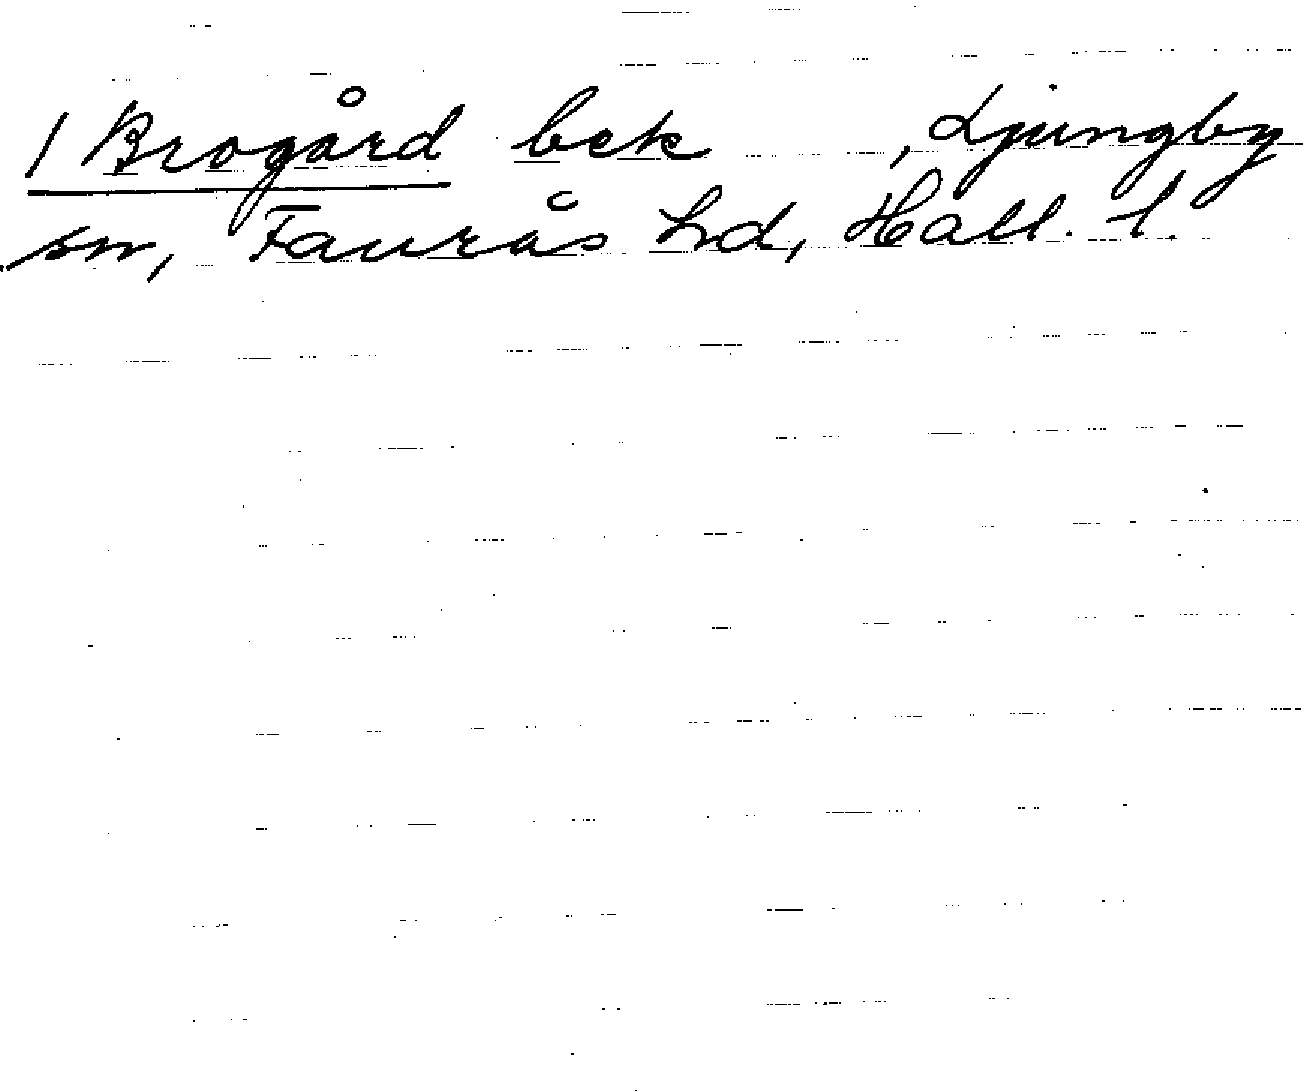 1 Brogård bek , Ljungby
sn, Faurås hd, Hall. l.